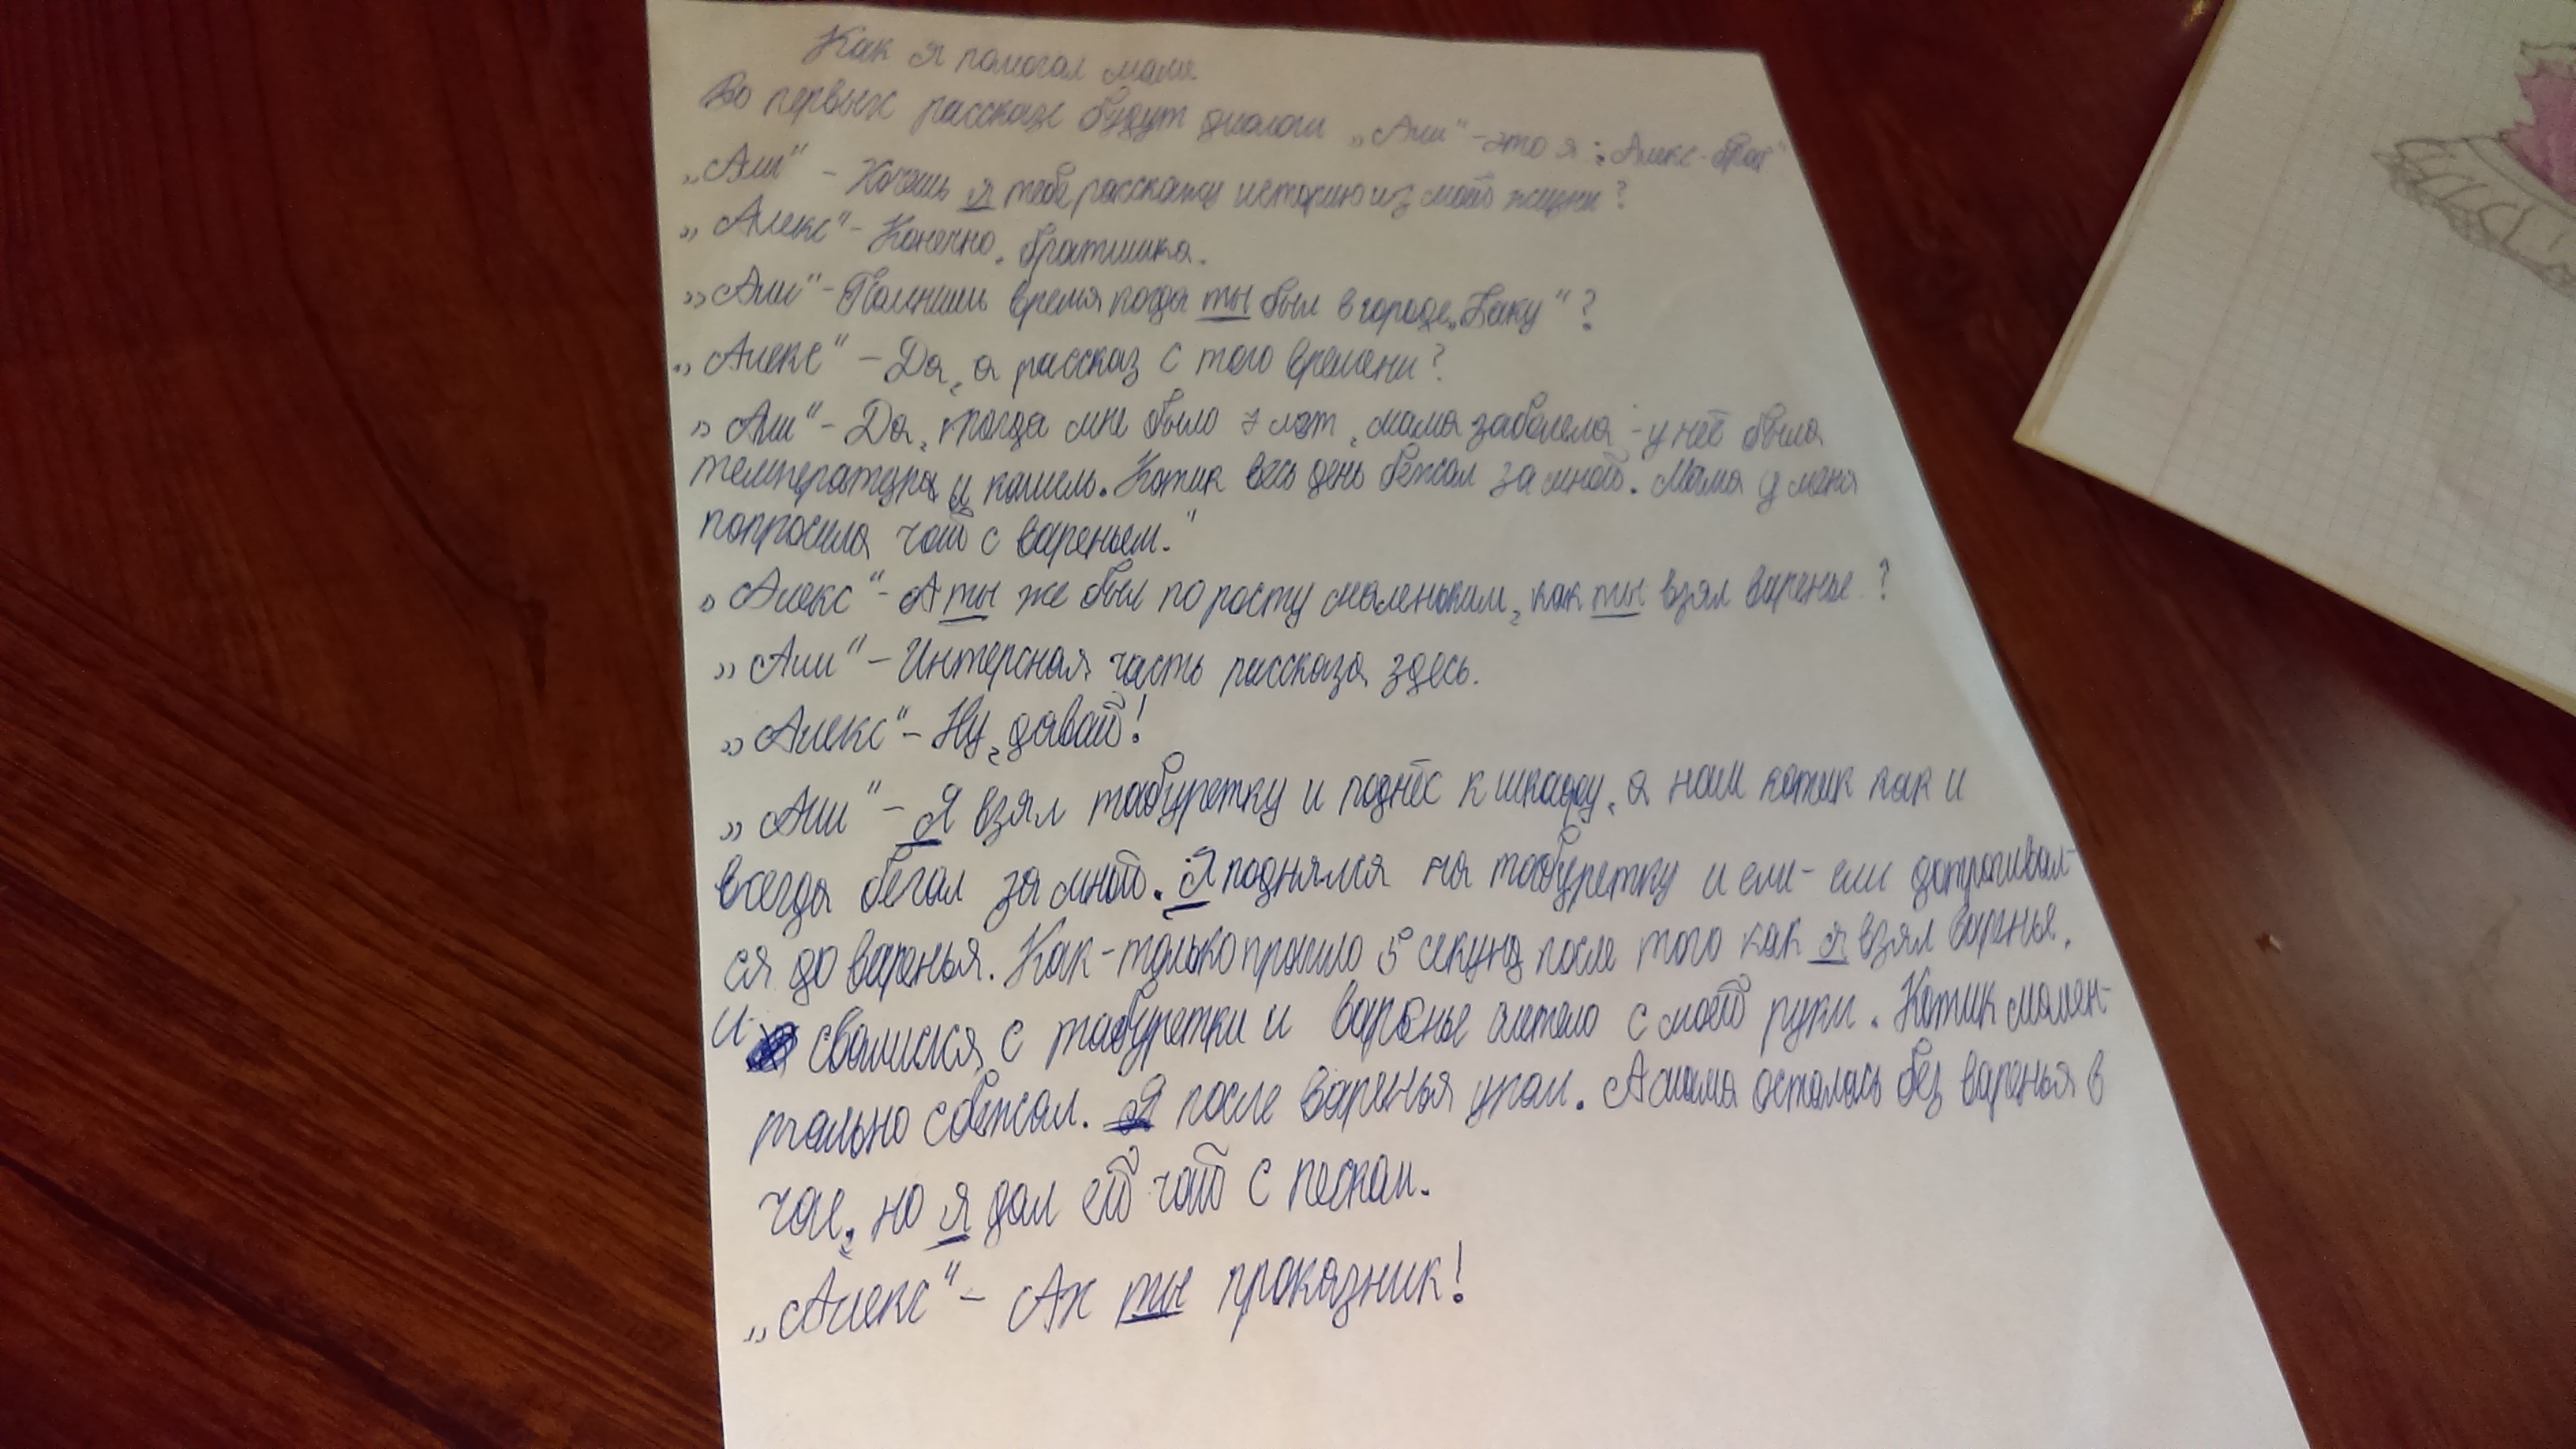 Как я помогал маме
Во первых рассказе будут диалоги „Али" - это я; „Алекс - брат"
„Али" - Хочешь я тебе расскажу историю из моей жизни?
„Алекс" - Конечно, братишка.
„Али" - Помнишь время когда ты был в городе „Баку"?
„Алекс" - Да, а рассказ с того времени?
„Али" - Да, тогда мне было 7 лет, мама заболела - у неё была
температура и кашель. Котик весь день бежал за мной. Мама у меня
попросила чай с вареньем."
„Алекс" - А ты же был по росту маленьким, как ты взял варенье?
„Али" - Интерсная часть рассказа здесь.
„Алекс" - Ну, давай!
„Али" - Я взял табуретку и поднёс к шкафу, а наш котик как и
всегда бегал за мной. Я поднялся на табуретку и ели-ели дотрогивал-
ся до варенья. Как-только прошло 5 секунд после того как я взял варенья,
и свалился с табуретки и варенье летело с моей руки. Котик момен-
тально сбежал. Я после варенья упал. А мама осталась без варенья в
чае, но я дал ей чай с песком.
„Алекс" - Ах ты проказник!